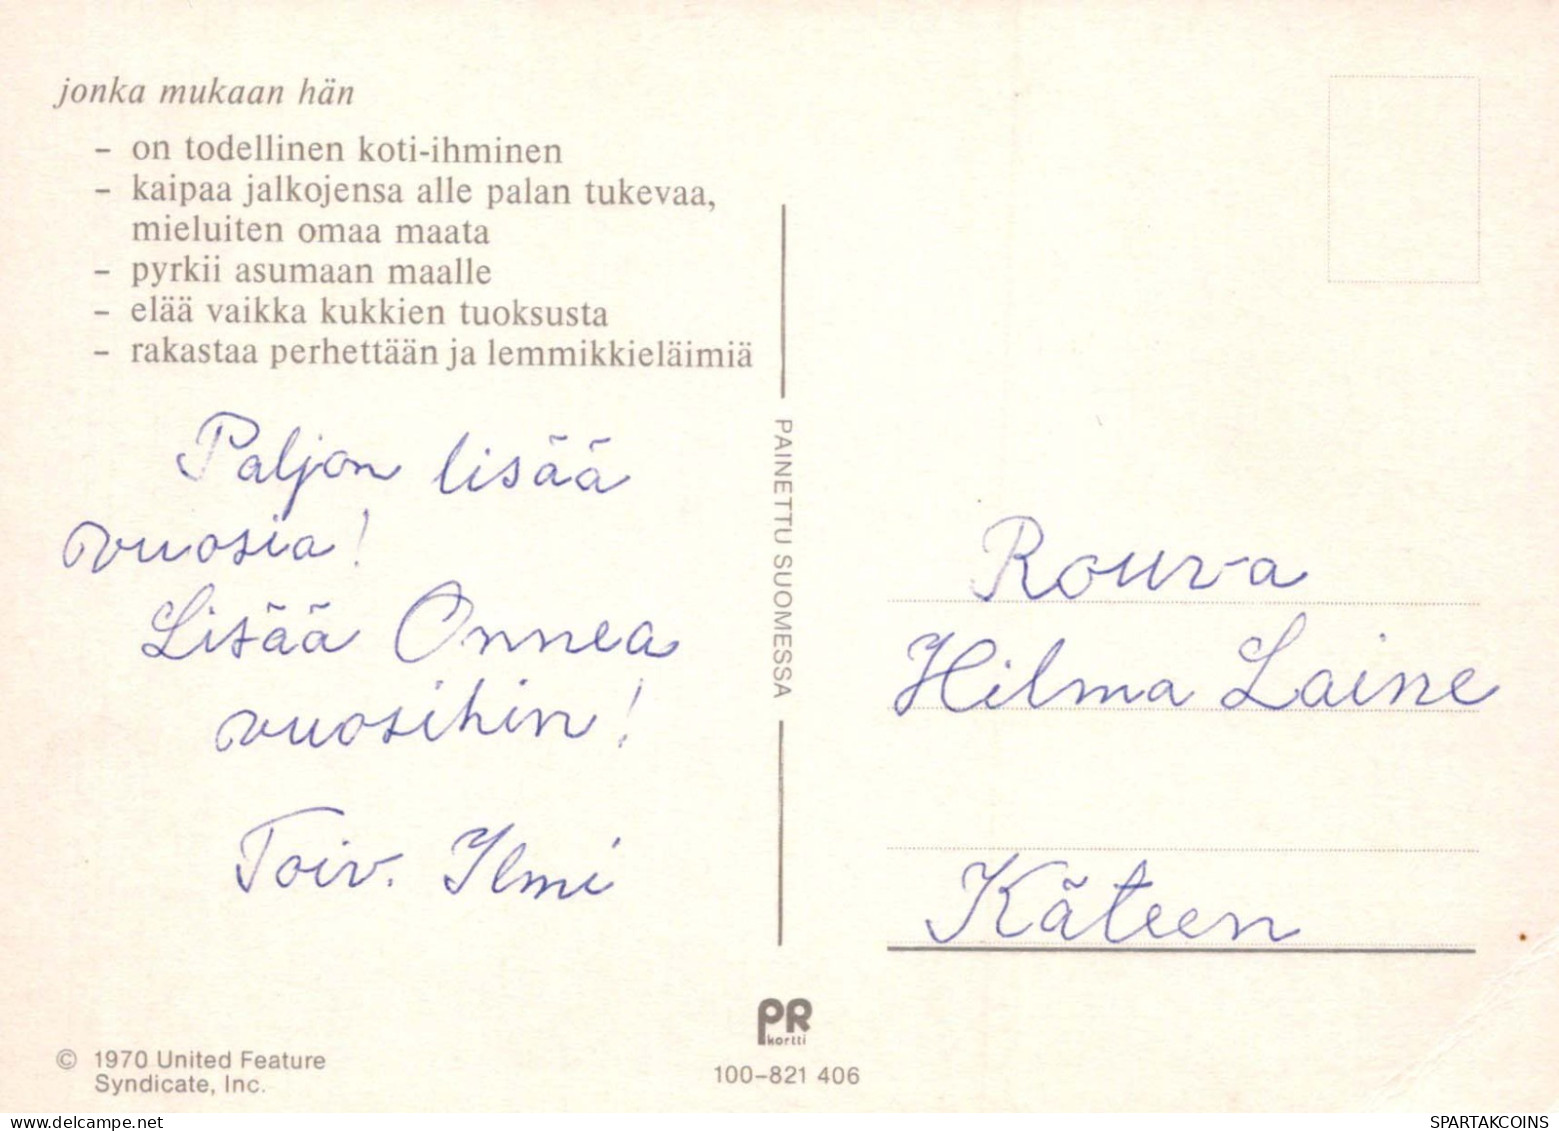 jonka mukaan hän
– on todellinen koti-ihminen
– kaipaa jalkojensa alle palan tukevaa,
mieluiten omaa maata
– pyrkii asumaan maalle
– elää vaikka kukkien tuoksusta
– rakastaa perhettään ja lemmikkieläimiä
Paljon lisää
vuosia!
Lisää Onnea
vuosihin!
Toiv. Ilmi
PAINETTU SUOMESSA
Rouva
Hilma Laine
Käteen
PR
kortti
100-821 406
© 1970 United Feature
Syndicate, Inc.
https://www.delcampe.net
SPARTAKCOINS